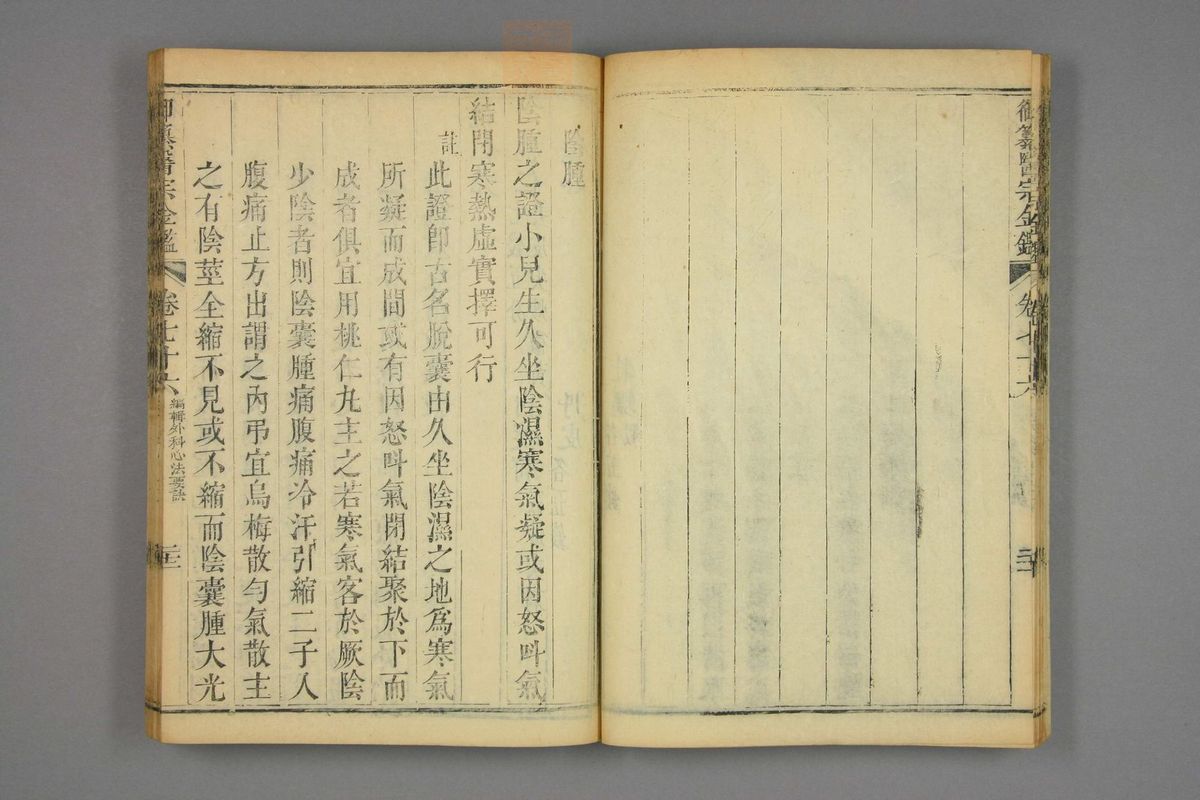 御纂醫宗金鑑 卷七十六
陰腫
陰腫之證小兒生久坐陰濕寒氣凝或因怒叫氣
結閉寒熱虛實擇可行
註
此證卽古名脫囊由久坐陰濕之地爲寒氣
所凝而成間或有因怒叫氣閉結聚於下而
成者俱宜用桃仁丸主之若寒氣客於厥陰
少陰者則陰囊腫痛腹痛冷汗引縮二子入
腹痛止方出謂之內弔宜烏梅散勻氣散主
之有陰莖全縮不見或不縮而陰囊腫大光
御纂醫宗金鑑 卷七十六 編輯外科心法要訣